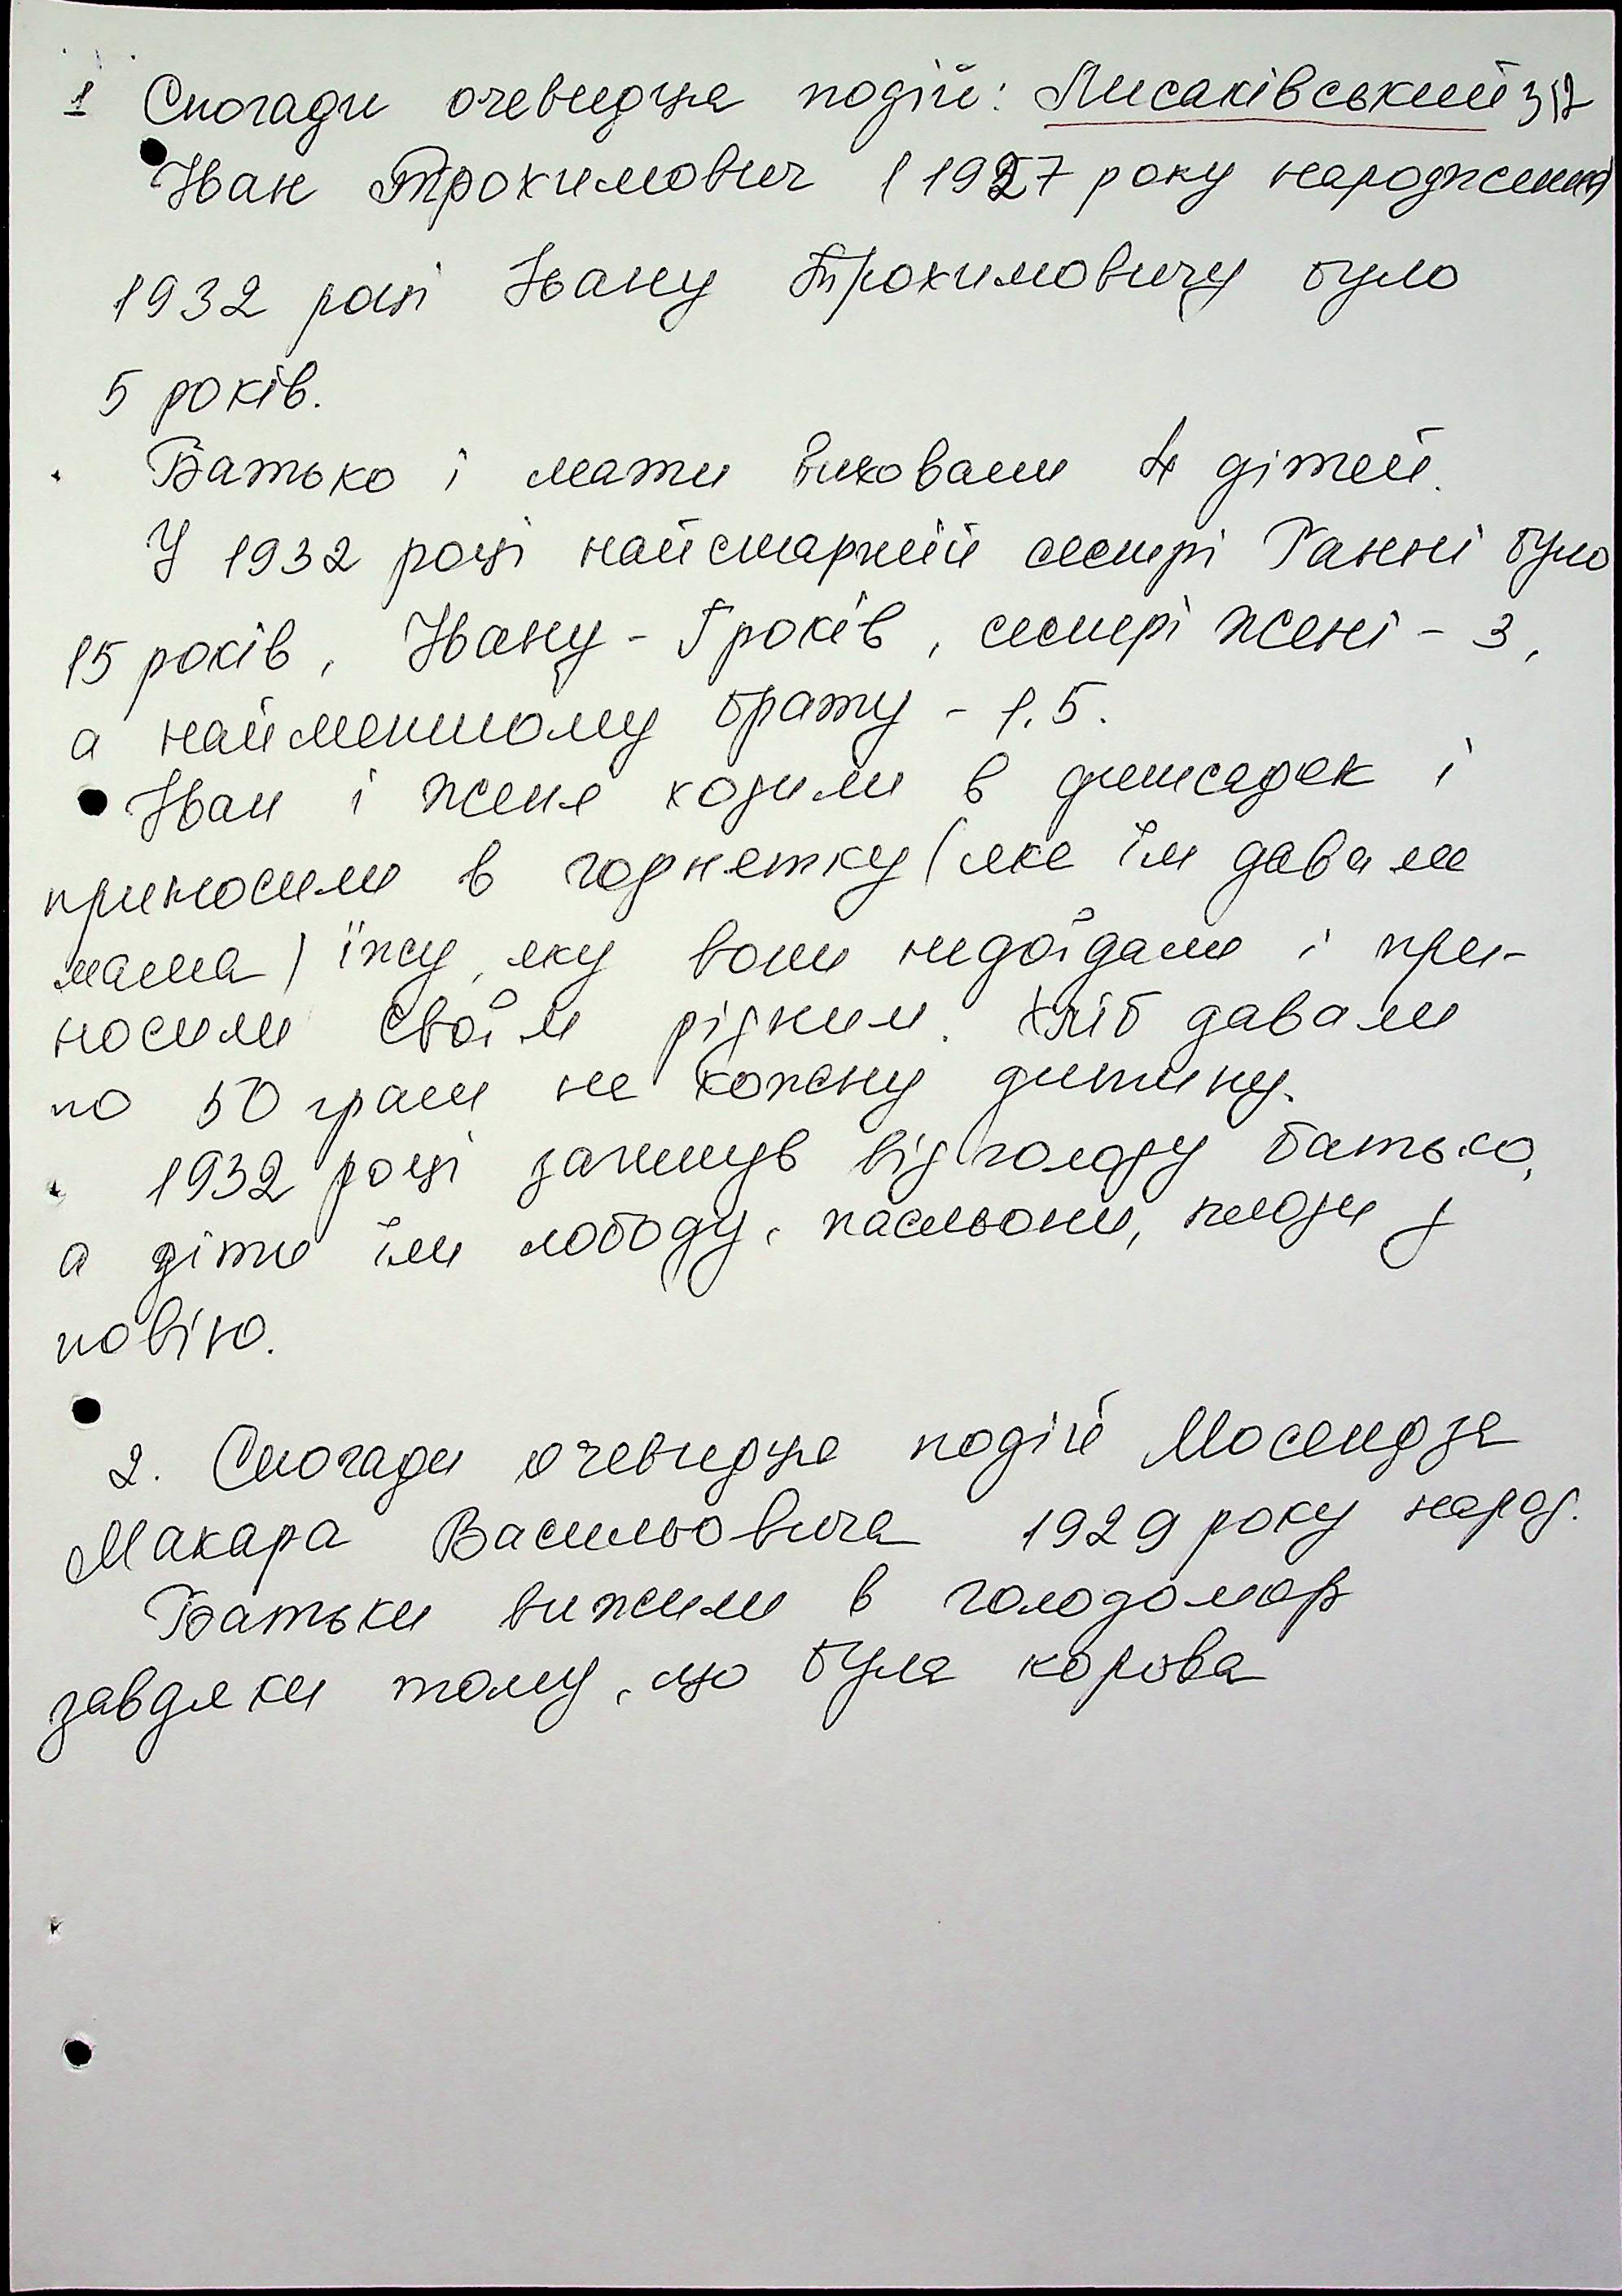 1 Спогади очевидця подій: Лисаківський
Іван Трохимович (1927 року народження)
1932 році Івану Трохимовичу було
5 років.
Батько і мати виховали 4 дітей.
У 1932 році найстаршій сестрі Ганні було
15 років, Івану - 5 років, сестрі Жені - 3,
а найменшому брату - 1,5.
Іван і Женя ходили в дитсадок і
приносили в горнятку (яке їм давала
мама) їжу, яку вони недоїдали і при-
носили своїм рідним. Хліб давали
по 50 грам на кожну дитину.
1932 році загинув від голоду батько,
а діти їли лободу, пасльони, плоди
повію.
2. Спогади очевидця подій Мосендза
Макара Васильовича 1929 року народ.
Батьки вижили в голодомор
завдяки тому, що була корова